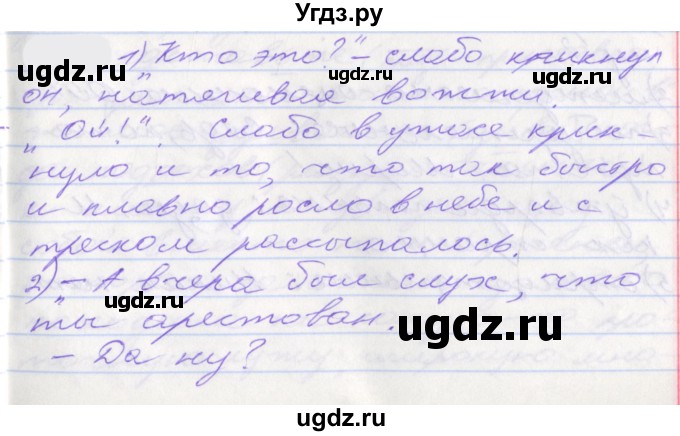 Угдз.ру
1) „Кто это?" – слабо крикнул
он, натягивая вожжи.
„Ой!". Слабо в ужасе крик-
нуло и то, что так быстро
и плавно росло в небе и с
треском рассыпалось.
2) – А вчера был слух, что
ты арестован.
– Да ну?
ugdz.ru
ugdz.ru
ugdz.ru
ugdz.ru
ugdz.ru
ugdz.ru
ugdz.ru
ugdz.ru